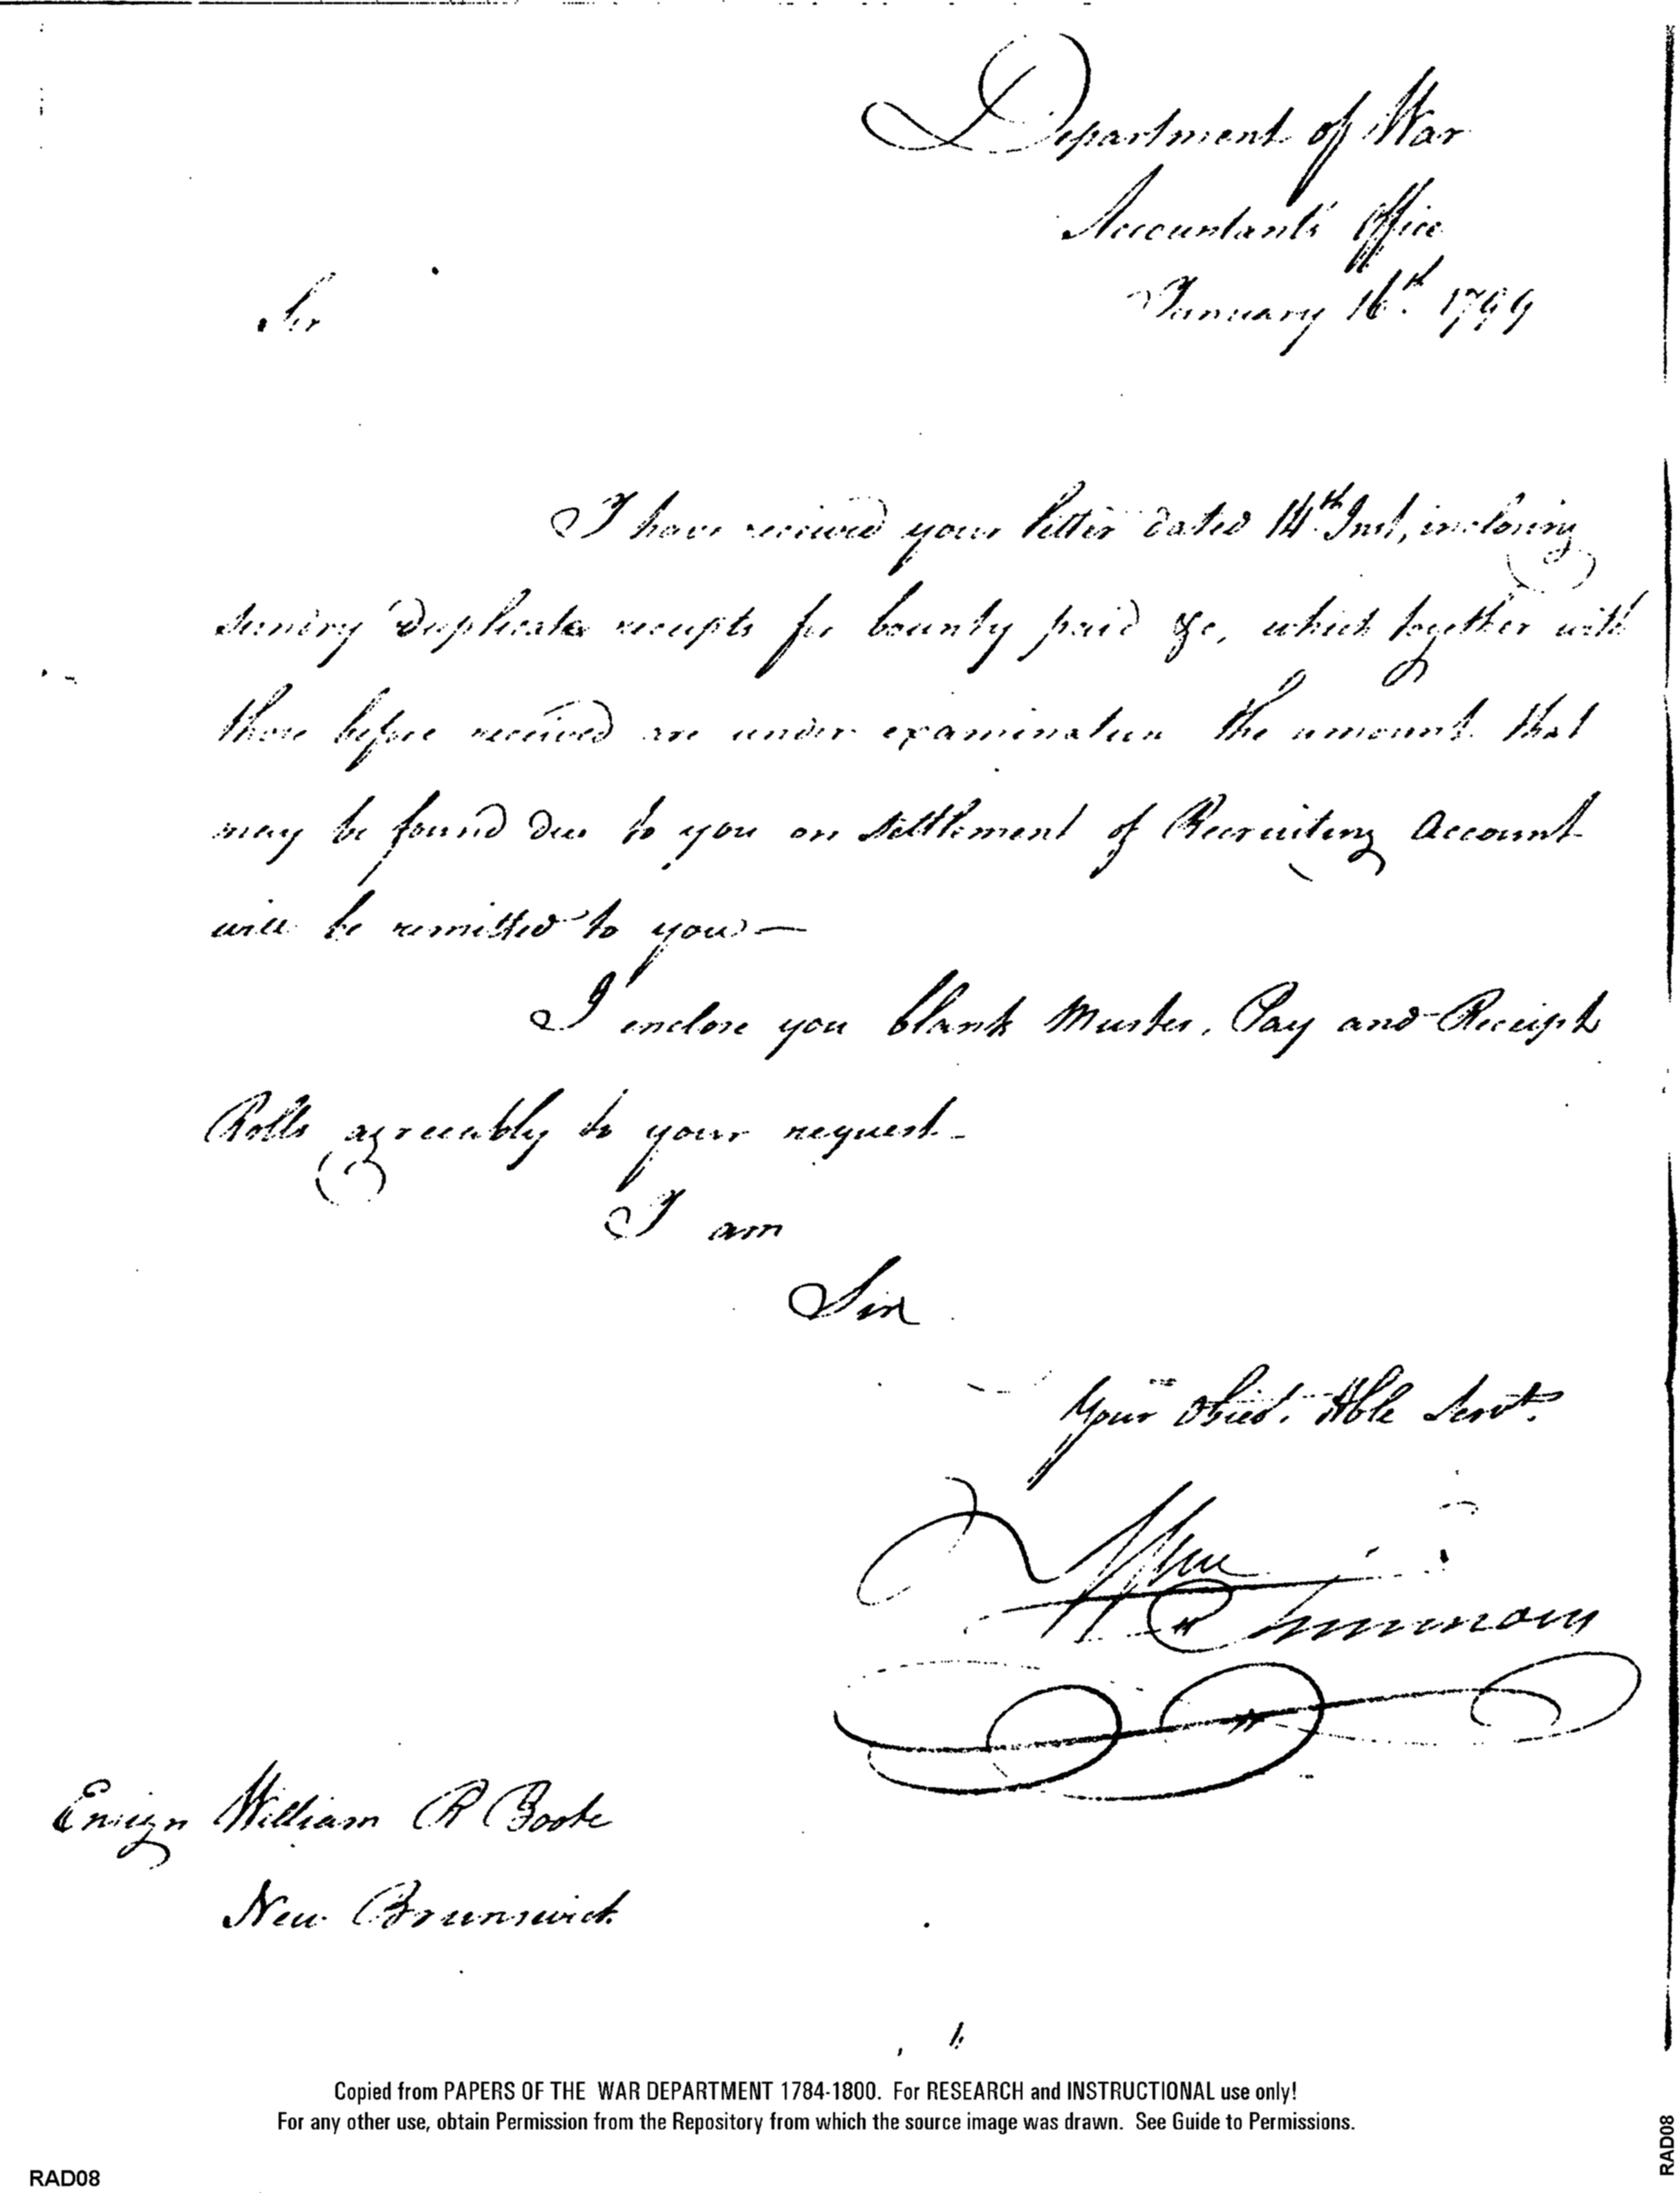 Department of War
Accountants Office
January 16th. 1799
Sir
I have received your letter dated 14th Inst, inclosing
sundry duplicate receipts for bounty paid &c, which together with
those before received are under examination the amount that
may be found due to you on settlement of Recruiting Account
will be remitted to you—
I enclose you blank Muster, Pay and Receipt
Rolls agreeably to your request—
I am
Sir
Your Obied. Hble Servt.
Wm
Simmons
Ensign William R Boote
New Brunswick
Copied from PAPERS OF THE WAR DEPARTMENT 1784-1800. For RESEARCH and INSTRUCTIONAL use only!
For any other use, obtain Permission from the Repository from which the source image was drawn. See Guide to Permissions.
RAD08
RAD08